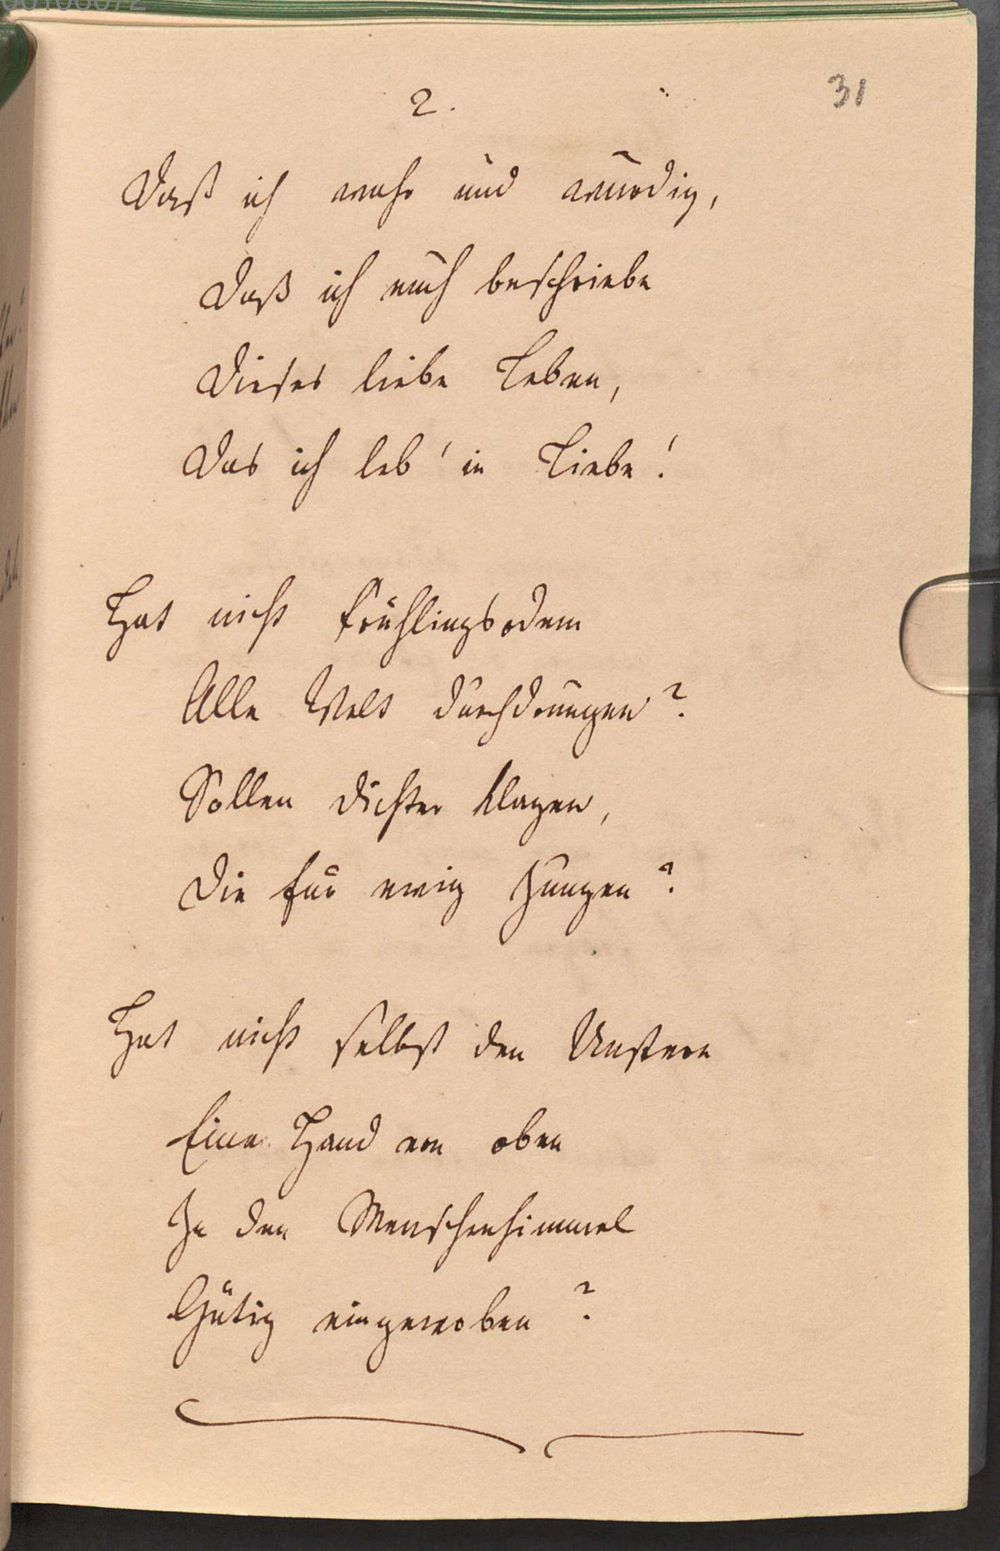 2.
31
Daß ich wahr und würdig,
Daß ich euch beschriebe
Dieses liebe Leben,
Das ich leb' in Liebe!
Hat nicht Frühlingsodem
Alle Welt durchdrungen?
Sollen Dichter klagen,
Die für ewig jungen?
Hat nicht selbst den Unstern
Eine Hand von oben
In den Menschenhimmel
Gütig eingewoben?